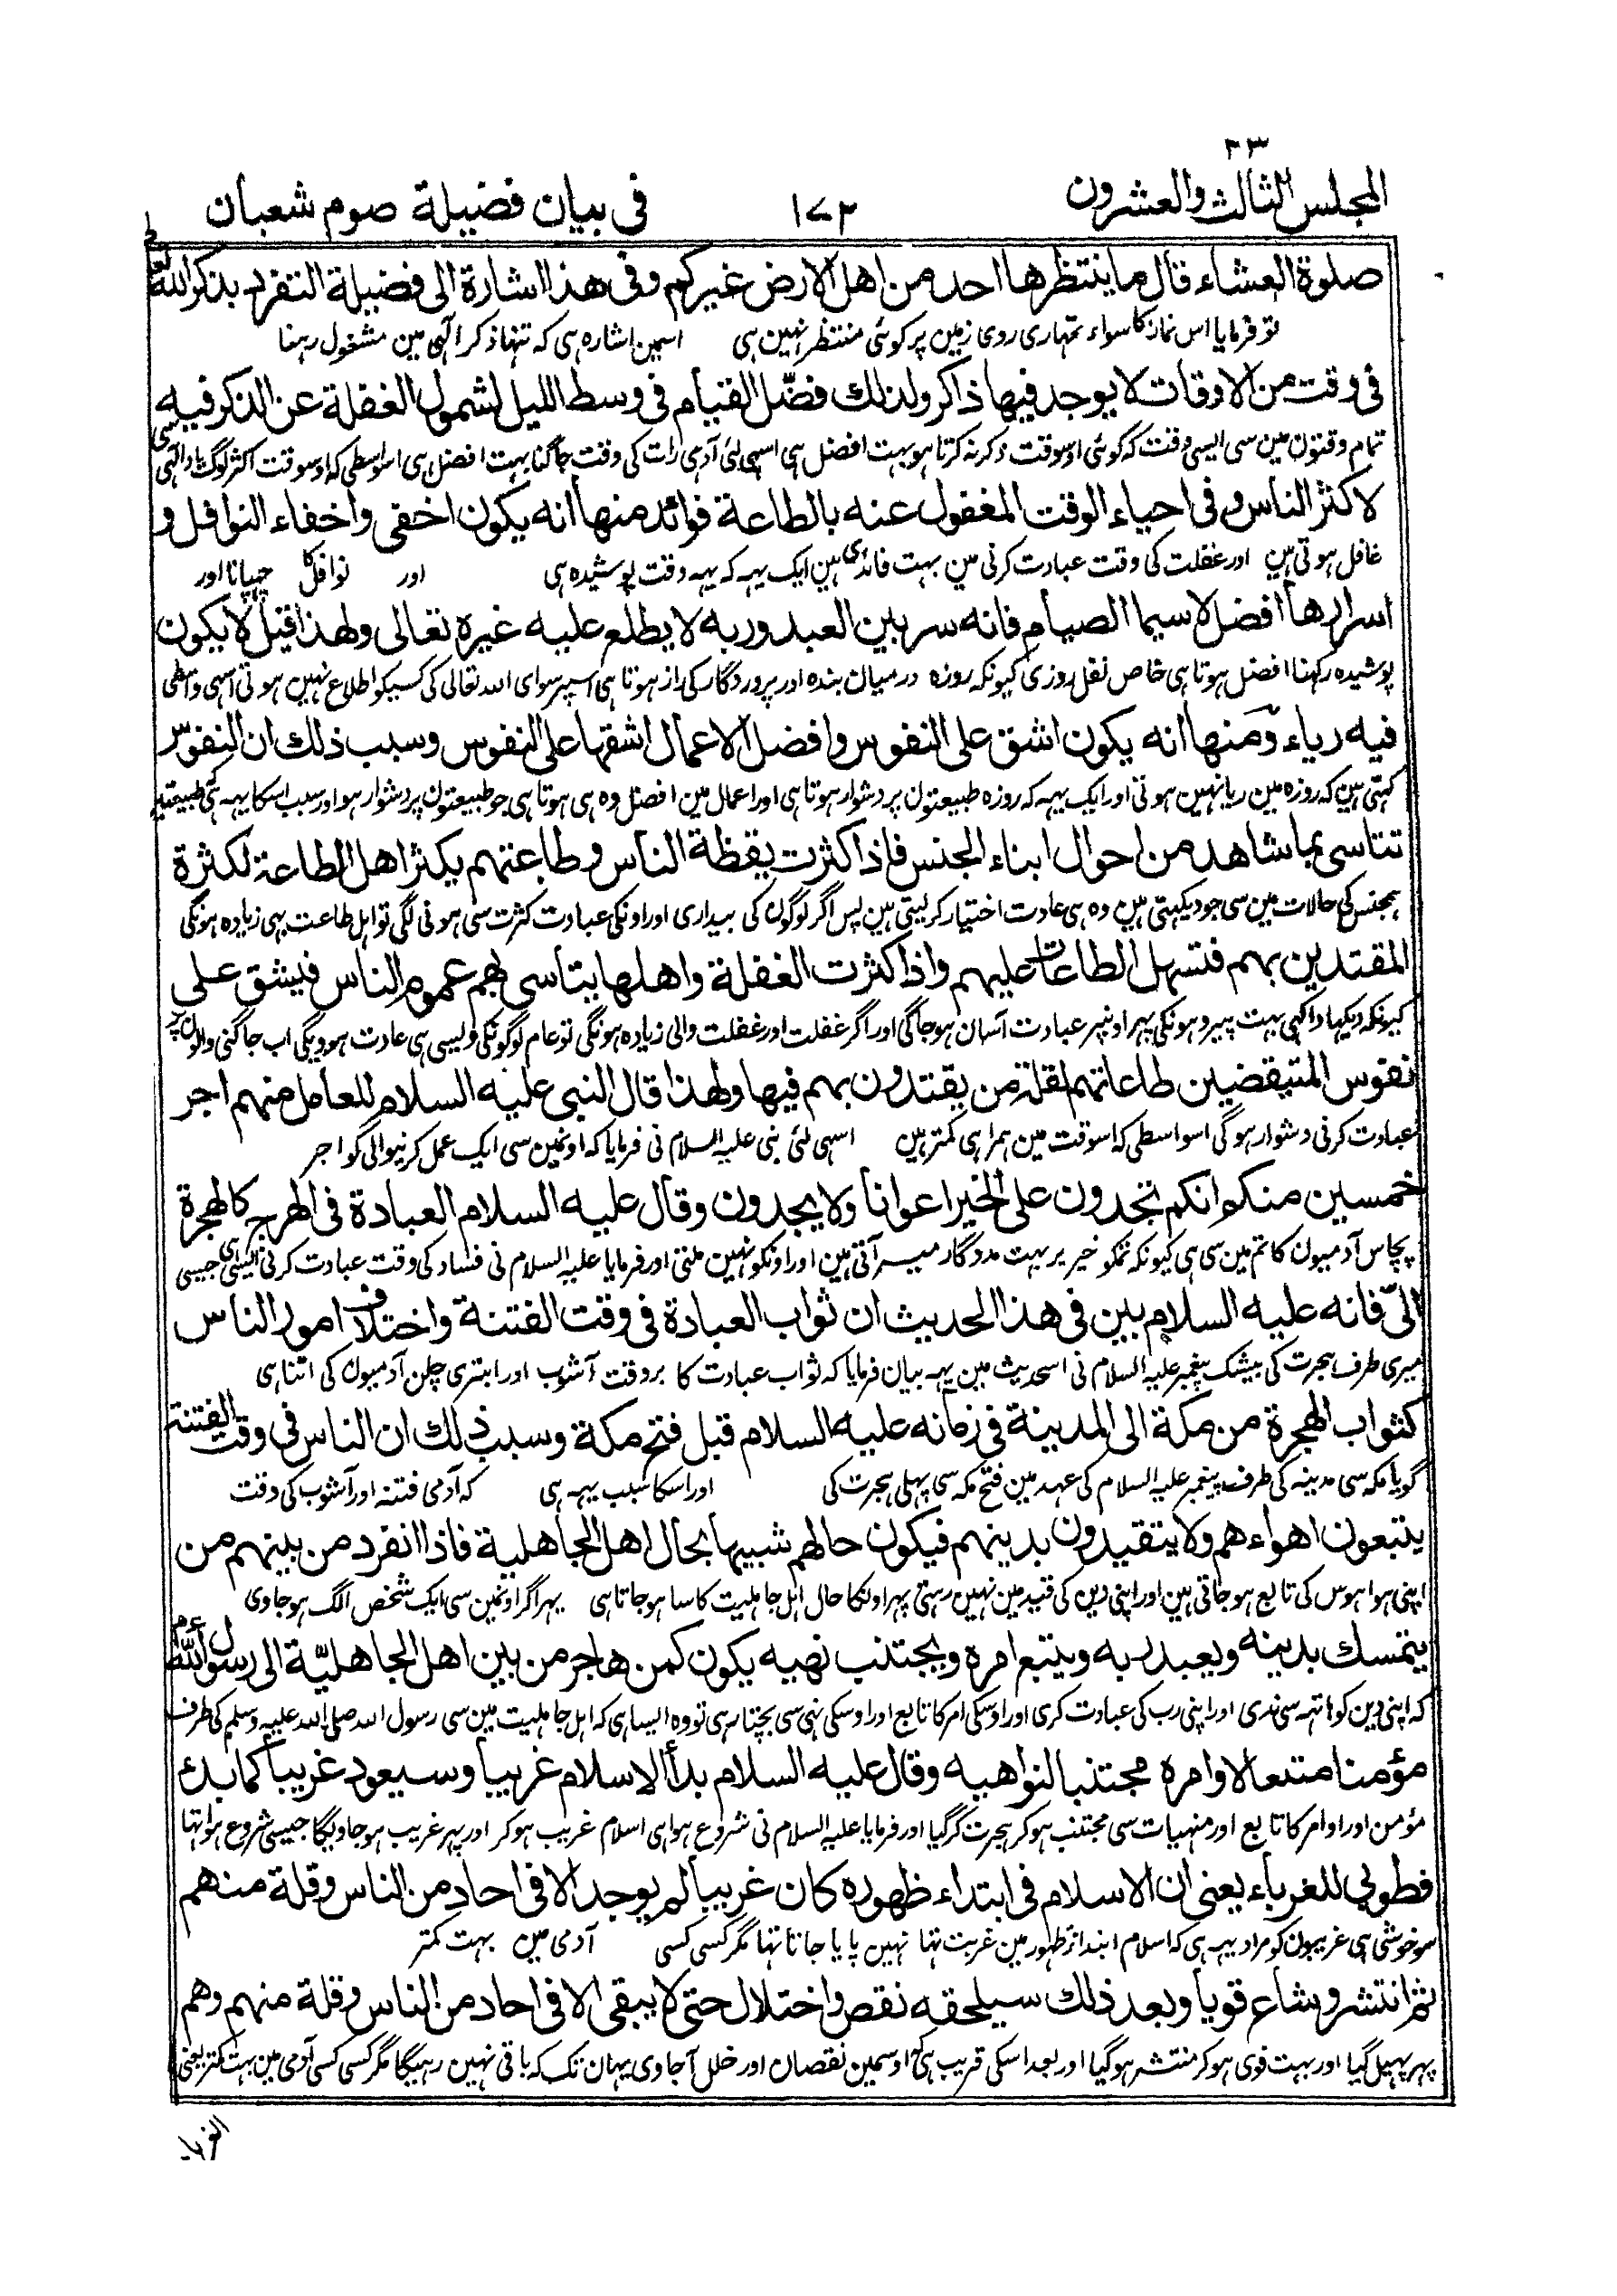 ۲۳
المجلس الثالث والعشرون
۱۷۲
فى بيان فضيلة صوم شعبان
صلوة العشاء قال ما ينتظرها احد من اهل الارض غيركم وفى هذا اشارة الى فضيلة التفرد بذكر الله تعالى
تو فرمایا اس نماز کا سواء تمہاری روی زمین پر کوئی منتظر نہین ہی اسمین اشارہ ہی کہ تنہا ذکر الٰہی مین مشغول رہنا
فى وقت من الاوقات لا يوجد فيها ذاكر ولذلك فضّل القيام فى وسط الليل لشمول الغفلة عن الذكر فيه
تمام وقتون مین سی ایسی وقت کہ کوئی اوسوقت ذکر نہ کرتا ہو بہت افضل ہی اسی لئی آدہی رات کی وقت جاگنا بہت افضل ہی اسواسطی کہ اوسوقت اکثر لوگ یاد الٰہی سی
لاكثر الناس و فى احياء الوقت المغفول عنه بالطاعة فوائد منها انه يكون اخفى واخفاء النوافل و
غافل ہوتی ہین اور غفلت کی وقت عبادت کرنی مین بہت فائدی ہین ایک یہہ کہ یہہ وقت پوشیدہ ہی اور نوافل کا چہپانا اور
اسرارها افضل لاسيما الصيام فانه سر بين العبد وربه لا يطلع عليه غيره تعالى ولهذا قيل لا يكون
پوشیدہ رکہنا افضل ہوتا ہی خاص نفل روزی کیونکہ روزہ درمیان بندہ اور پروردگار کی راز ہوتا ہی اسپر سوای اللہ تعالی کی کسیکو اطلاع نہین ہوتی اسی واسطی
فيه رياء ومنها انه يكون اشق على النفوس وافضل الاعمال اشقها على النفوس وسبب ذلك ان النفوس
کہتی ہین کہ روزہ مین ریا نہین ہوتی اور ایک یہہ کہ روزہ طبیعتون پر دشوار ہوتا ہی اور اعمال مین افضل وہ ہی ہوتا ہی جو طبیعتون پر دشوار ہو اور سبب اسکا یہہ ہی طبیعتین
تتاسى بما شاهد من احوال ابناء الجنس فاذا كثرت يقظة الناس وطاعتهم يكثر اهل الطاعة لكثرة
ہمجنس کی حالات مین سی جو دیکہتی ہین وہ ہی عادت اختیار کر لیتی ہین پس اگر لوگون کی بیداری اور اونکی عبادت کثرت سی ہونی لگی تو اہل طاعت بہی زیادہ ہونگی
المقتدين بهم فتسهل الطاعات عليهم واذا كثرت الغفلة واهلها يتأسى بهم عموم الناس فيشق على
کیونکہ دیکہا داکہی بہت پیرو ہونگی پہر اونپر عبادت آسان ہوجاگی اور اگر غفلت اور غفلت والی زیادہ ہونگی تو عام لوگونکی ولیسی ہی عادت ہوویگی اب جاگنی والون پر
نفوس المتيقضين طاعاتهم لقلة من يقتدون بهم فيها ولهذا قال النبى عليه السلام للعامل منهم اجر
عبادت کرنی دشوار ہوگی اسواسطی کہ اسوقت مین ہمراہی کمتر ہین اسی لئی نبی علیہ السلام نی فرمایا کہ اونمین سی ایک عمل کرنیوالی کو اجر
خمسين منكم انكم تجدون على الخير اعوانا ولا يجدون وقال عليه السلام العبادة فى الهرج كالهجرة
پچاس آدمیون کا تم مین سی ہی کیونکہ تمکو خیر پر بہت مددگار میسر آتی ہین اور اونکو نہین ملتی اور فرمایا علیہ السلام نی فساد کی وقت عبادت کرنی ایسی ہی جیسی
الىّ فانه عليه السلام بين فى هذا الحديث ان ثواب العبادة فى وقت الفتنة واختلاف امور الناس
میری طرف ہجرت کی بیشک پیغمبر علیہ السلام نی اسحدیث مین یہہ بیان فرمایا کہ ثواب عبادت کا بر وقت آشوب اور ابتری چلن آدمیون کی اتنا ہی
كثواب الهجرة من مكة الى المدينة فى زمانه عليه السلام قبل فتح مكة وسبب ذلك ان الناس فى وقت الفتنة
گویا مکہ سی مدینہ کی طرف پیغمبر علیہ السلام کی عہد مین فتح مکہ سی پہلی ہجرت کی اور اسکا سبب یہہ ہی کہ آدمی فتنہ اور آشوب کی وقت
يتبعون اهواءهم ولا يتقيدون بدينهم فيكون حالهم شبيها بحال اهل الجاهلية فاذا انفرد من بينهم من
اپنی ہوا ہوس کی تابع ہو جاتی ہین اور اپنی دین کی قید مین نہین رہتی پہر اونکا حال اہل جاہلیت کا سا ہو جاتا ہی پہر اگر اونمین سی ایک شخص الگ ہو جاوی
يتمسك بدينه ويعبد ربه ويتبع امره ويجتنب نهيه يكون كمن هاجر من بين اهل الجاهليّة الى رسول الله عم
کہ اپنی دین کو ہاتہہ سی ندی اور اپنی رب کی عبادت کری اور اوسکی امر کا تابع اور اوسکی نہی سی بچتا رہی تو وہ ایسا ہی کہ اہل جاہلیت مین سی رسول اللہ صلی اللہ علیہ وسلم کی طرف
مؤمنا متبعا لاوامره مجتنبا لنواهيه وقال عليه السلام بدأ الاسلام غريبا وسيعود غريبا كما بدئ
مؤمن اور اوامر کا تابع اور منہیات سی مجتنب ہو کر ہجرت کرگیا اور فرمایا علیہ السلام نی شروع ہوا ہی اسلام غریب ہو کر اور پہر غریب ہوجاویگا جیسی شروع ہوا تہا
فطوبى للغرباء يعنى ان الاسلام فى ابتداء ظهوره كان غريبا لم يوجد الا فى احاد من الناس وقلة منهم
سو خوشی ہی غریبون کو مراد یہہ ہی کہ اسلام ابتداء ظہور مین غربت تہا نہین پایا جاتا تہا مگر کسی کسی آدمی مین بہت کمتر
ثم انتشر وشاع قويا وبعد ذلك سيلحقه نقص واختلال حتى لا يبقى الا فى احاد من الناس وقلة منهم وهم
پہر پہیل گیا اور بہت قوی ہو کر منتشر ہوگیا اور بعد اسکی قریب ہی کہ اوسمین نقصان اور خلل آجاوی یہان تک کہ باقی نہین رہیگا مگر کسی کسی آدمی مین بہت کمتر یعنی
الغرباء